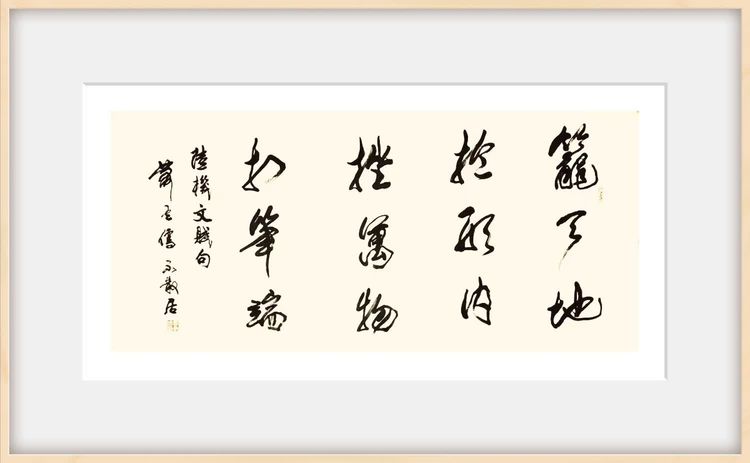 籠天地
於形內
挫萬物
於筆端
陸機文賦句
儒 居